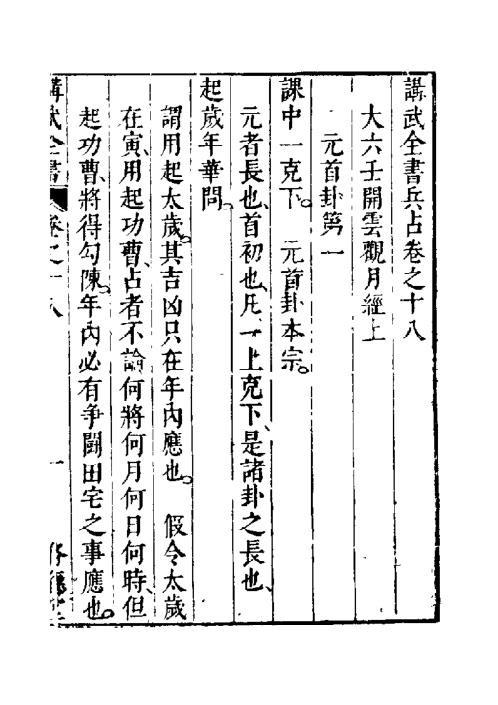 講武全書兵占卷之十八
大六壬開雲觀月經上
元首卦第一
課中一克下。元首卦本宗。
元者長也、首初也、凡一上克下、是諸卦之長也、
起歲年華問。
謂用起太歲。其吉凶只在年內應也。假令太歲
在寅、用起功曹、占者不論何將何月何日何時、但
起功曹、將得勾陳。年內必有爭鬪田宅之事應也。
講武全書 卷之十八 一